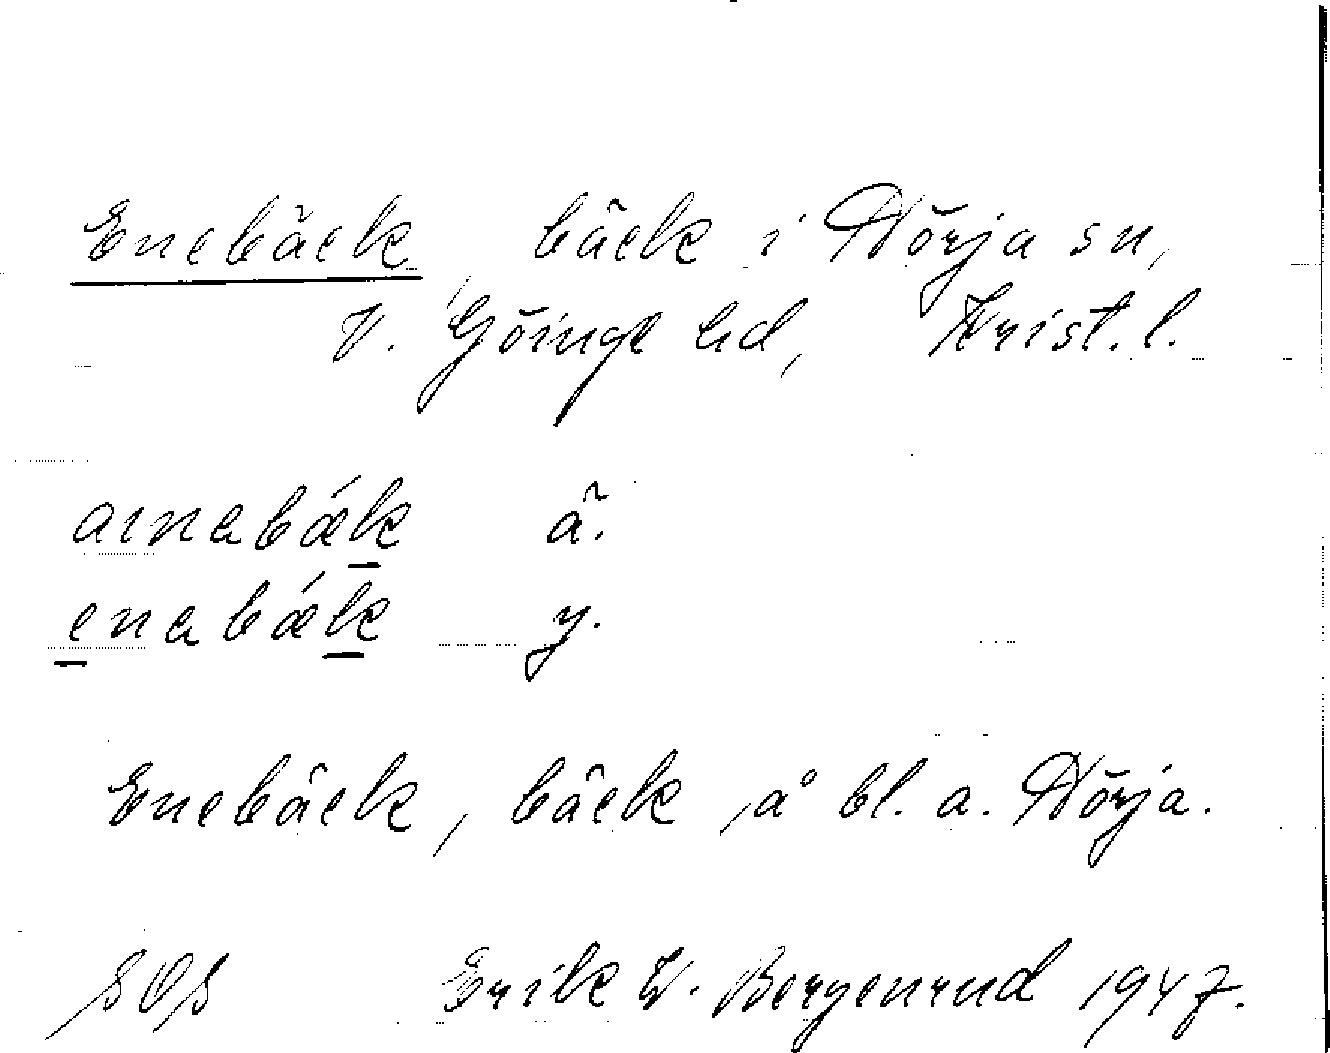 Enebäck, bäck i Nörja sn,
V. Göinge hd, Krist. l.
ainabǽk ä.
enabǽk y.
Enebäck, bäck, å bl. a. Nörja.
SOS Erik W. Bergenrud 1947.